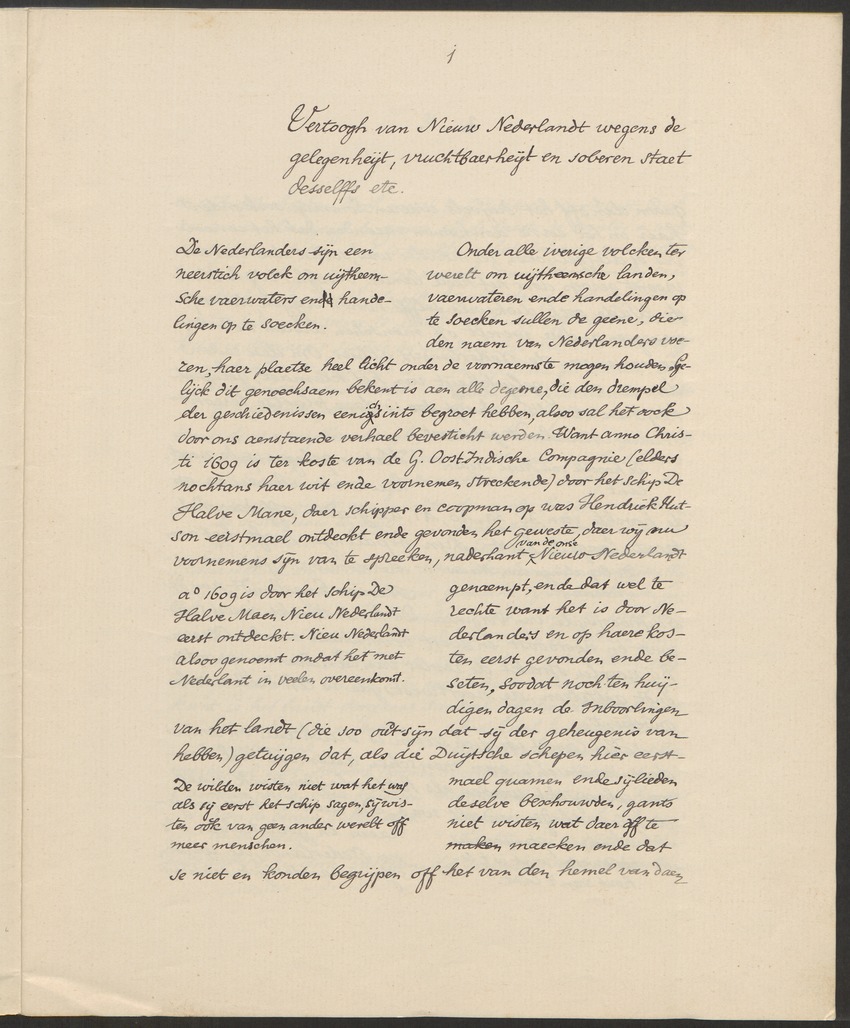 1
Vertoogh van Nieuw Nederlandt wegens de
gelegenheijt, vruchtbaerheijt en soberen staet
desselffs etc.
De Nederlanders sijn een
neerstich volck om uijtheem-
sche vaerwaters ende hande-
lingen op te soecken.
Onder alle iverige volcken ter
werelt om uijtheemsche landen,
vaerwateren ende handelingen op
te soecken sullen de geene, die
den naem van Nederlanders voe-
ren, haer plaetse heel licht onder de voornaemste mogen houden. Ge-
lijck dit genoechsaem bekent is aen alle degene, die den drempel
der geschiedenissen eenigsints begroet hebben, alsoo sal het oock
door ons aenstaende verhael bevesticht werden. Want anno Chris-
ti 1609 is ter koste van de G. Oost Indische Compagnie (elders
nochtans haer wit ende voornemen streckende) door het schip De
Halve Mane, daer schipper en coopman op was Hendrick Hut-
son eerstmael ontdeckt ende gevonden het geweste, daer wij nu
voornemens sijn van te spreeken, naderhant van de onse Nieuw Nederlandt
a° 1609 is door het schip De
Halve Maen Nieu Nederlandt
eerst ontdeckt. Nieu Nederlandt
alsoo genoemt omdat het met
Nederlant in veelen overeenkomt.
genaempt, ende dat wel te
rechte want het is door Ne-
derlanders en op haere kos-
ten eerst gevonden ende be-
seten, soodat noch ten huij-
digen dagen de Inboorlingen
van het landt (die soo oudt sijn dat sij der geheugenis van
hebben) getuijgen dat, als die Duijtsche schepen hier eerst-
De wilden wisten niet wat het was
als sij eerst het schip sagen, sij wis-
ten ook van geen ander werelt off
meer menschen.
mael quamen ende sijlieden
deselve beschouwden, gants
niet wisten wat daer off te
maken maecken ende dat
se niet en konden begrijpen off het van den hemel van daen